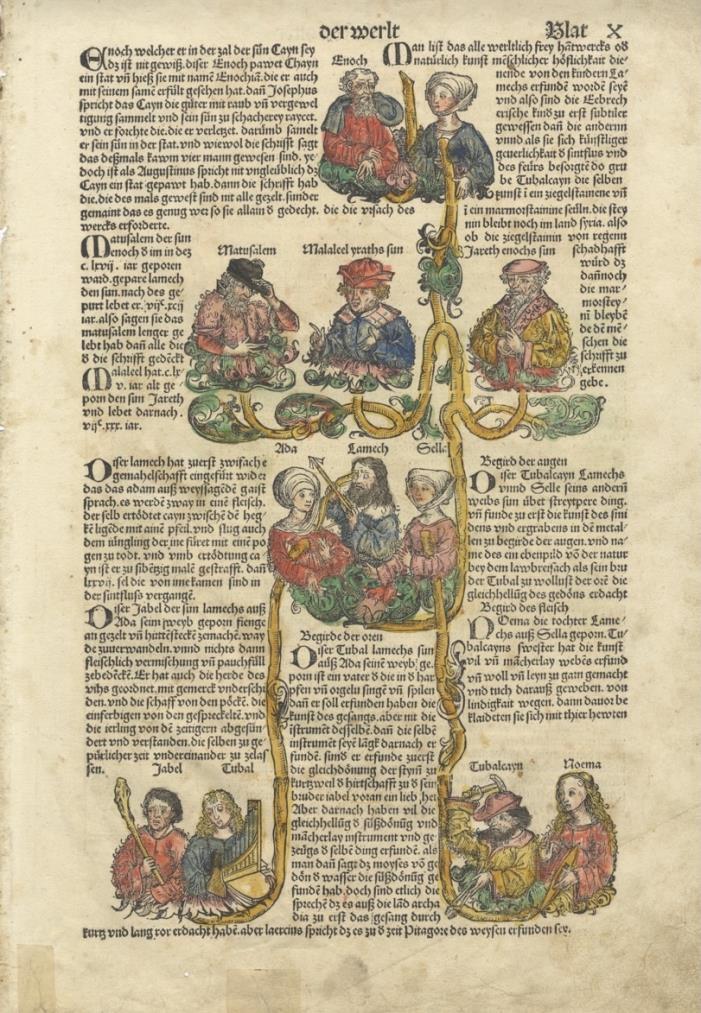 der werlt
Blat X
Enoch welcher er in der zal der sün Cayn sey
dz ist nit gewiß. diser Enoch pawet Chayn
ein stat vñ hieß sie mit namē Enochiā. die er auch
mit seinem samē erfült gesehen hat. dañ Josephus
spricht das Cayn die güter mit raub vñ vergewel
tigung sammelt vnd sein sün zu schacherey raycet.
vnd er forchte die. die er verlezet. darümb samelt
er sein sün in der stat. vnd wiewol die schrifft sagt
das deßmals kawm vier mann gewesen sind. ye
doch ist als Augustinus spricht nit vngleublich dz
Cayn ein stat gepawt hab. dann die schrifft hab
die. die des mals gewest sind nit alle gezelt. sunder
gemaint das es genug wer so sie allain d gedecht. die die vrsach des
wercks erforderte.
Enoch
Man list das alle werltlich frey hātwercks oð
natürlich kunst mēschlicher höflichkait die-
nende von den kindern La-
mechs erfunden wordē seyē
vnd also sind die Eebrech
erische kind zu erst subtiler
gewessen dañ die andernn
vnnd als sie sich künftiger
geuerlichkait ð sintflus vnd
des feürs besorgtē do gru
be Tubalcayn die selben
kunst i ein ziegelstainene vñ
i ein marmorstainine seüln. die stey
nin bleibt noch im land syria. also
ob die ziegelstainin von regenn
schadhafft
würd dz
dañnoch
die mar-
morstey-
ni bleybē
de dē mē-
schen die
schrifft zu
erkennen
gebe.
Matusalem der sun
enoch ð im in dez
c. lxvij. iar geporen
ward. gepare lamech
den sun. nach des ge-
purt lebet er. vijᶜ. xcij
iar. also sagen sie das
matusalem lenger ge
lebt hab dañ alle die
ð die schrifft gedēckt
Malaleel hat. c. lx-
v. iar alt ge
porn den sun Jareth
vnd lebet darnach.
vijᶜ. xxx. iar.
Matusalem
Malaleel yraths sun
Jareth enochs sun
Ada
Lamech
Sella
Diser lamech hat zuerst zwifach e
gemahelschafft eingefürt wider
das das adam auß weyssagēdē gaist
sprach. es werdē zway in einē fleisch.
der selb ertödtet cayn zwischē dē heg-
kē ligēde mit ainē pfeil. vnd slug auch
dem iüngling der ine füret mit einē po
gen zu todt. vnd vmb ertödtung ca-
yn ist er zu sibēzig malē gestrafft. dañ
lxxvij. sel die von ime kamen sind in
der sintfluss vergangē.
Diser Jabel der sun lamechs auß
Ada seim weyb geporn fienge
an gezelt vñ hüttēsteckē zemachē. way
de zuuerwandeln. vnnd nichts dann
fleischlich vermischung vñ pauchfüll
zebedēckē. Er hat auch die herde des
vihs geordnet. mit gemerck vnderschi
den. vnd die schaff von den pöckē. die
einferbigen von den gespreckeltē. vnd
die ierling von dē zeitigern abgesün-
dert vnd verstanden. die selben zu ge-
pürlicher zeit vndereinander zu zelas
sen.
Jabel
Tubal
Begirde der oren
Diser Tubal lamechs sun
auß Ada seinē weyb ge-
porn ist ein vater ð die in ð har
pfen vñ orgeln singē vñ spilen
dañ er soll erfunden haben die
kunst des gesangs. aber nit die
istrumēt desselbē. dañ die selbē
instrumēt seyē lāgk darnach er
fundē. sund er erfunde zuerst
die gleichdönung der stym̄ zu
kurtzweil ð hirtschafft zu ð sein
bruder iabel voran ein lieb het
Aber darnach haben vil die
gleichhellüg ð süßdönüg vnd
mācherlay instrument vnd ge-
zeügs ð selbē ding erfundē. als
man dañ sagt dz moyses vō ge
dōn ð wasser die süßdönüg ge
funden hab. doch sind etlich die
sprechē dz es auß die läd archa
dia zu erst das gesang durch
kurtz vnd lang ror erdacht habē. aber laercius spricht dz es zu ð zeit Pitagore des weysen erfunden sey.
Begird der augen
Diser Tubalcayn Lamechs
vnnd Selle seins andern
weibs sun übet streytpere ding.
vñ fundē zu erst die kunst des smi
dens vnd ergrabens in dē metal-
len zu begirde der augen. vnd na-
me des ein ebenpild vō der natur
bey dem lawbreisach als sein bru
der Tubal zu wollust der orē die
gleichhellüg des gedöns erdacht
Begird des fleisch
Noema die tochter Lame-
chs auß Sella geporn. Tu-
balcayns swester hat die kunst
vil vñ mācherlay webēs erfund
vñ woll vñ leyn zu garn gemacht
vnd tuch darauß geweben. von
lindigkait wegen. dann dauor be
klaideten sie sich mit thier hewten
Tubalcayn
Noema